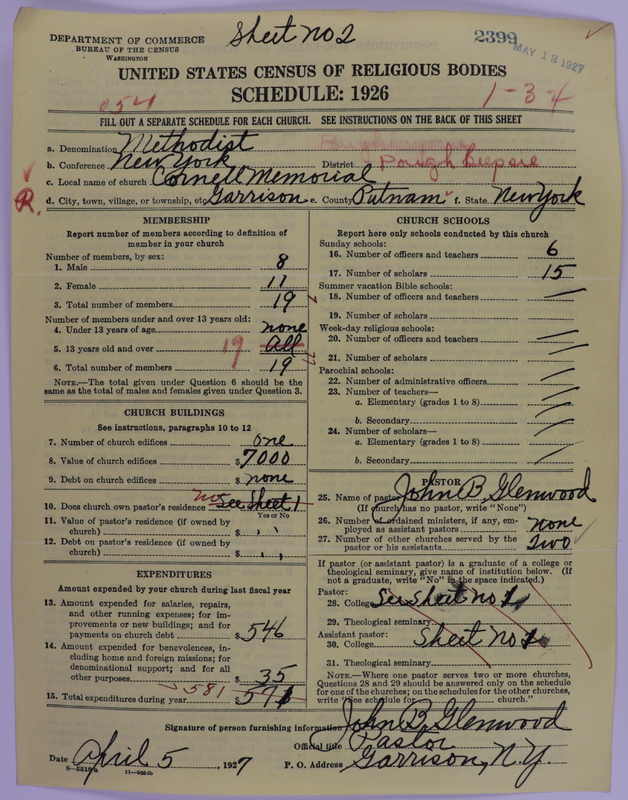 Sheet no 2
2399
MAY 13 1927
DEPARTMENT OF COMMERCE
BUREAU OF THE CENSUS
WASHINGTON
UNITED STATES CENSUS OF RELIGIOUS BODIES
SCHEDULE: 1926
054
1-3-4
FILL OUT A SEPARATE SCHEDULE FOR EACH CHURCH. SEE INSTRUCTIONS ON THE BACK OF THIS SHEET
a. Denomination Methodist
b. Conference New York District Poughkeepsie
c. Local name of church Cornell Memorial
R. d. City, town, village, or township, etc. Garrison e. County Putnam f. State New York
MEMBERSHIP
Report number of members according to definition of
member in your church
Number of members, by sex:
1. Male 8
2. Female 11
3. Total number of members 19
Number of members under and over 13 years old:
4. Under 13 years of age none
5. 13 years old and over 19 All
6. Total number of members 19
NOTE.—The total given under Question 6 should be the
same as the total of males and females given under Question 3.
CHURCH BUILDINGS
See instructions, paragraphs 10 to 12
7. Number of church edifices one
8. Value of church edifices $7000
9. Debt on church edifices $ none
10. Does church own pastor's residence no See Sheet 1
Yes or No
11. Value of pastor's residence (if owned by
church) $ , ,
12. Debt on pastor's residence (if owned by
church) $ , ,
EXPENDITURES
Amount expended by your church during last fiscal year
13. Amount expended for salaries, repairs,
and other running expenses; for im-
provements or new buildings; and for
payments on church debt $ 546
14. Amount expended for benevolences, in-
cluding home and foreign missions; for
denominational support; and for all
other purposes $ 35
15. Total expenditures during year 581 $
CHURCH SCHOOLS
Report here only schools conducted by this church
Sunday schools:
16. Number of officers and teachers 6
17. Number of scholars 15
Summer vacation Bible schools:
18. Number of officers and teachers
19. Number of scholars
Week-day religious schools:
20. Number of officers and teachers
21. Number of scholars
Parochial schools:
22. Number of administrative officers
23. Number of teachers—
a. Elementary (grades 1 to 8)
b. Secondary
24. Number of scholars—
a. Elementary (grades 1 to 8)
b. Secondary
PASTOR
25. Name of pastor John B. Glenwood
(If church has no pastor, write "None")
26. Number of ordained ministers, if any, em-
ployed as assistant pastors none
27. Number of other churches served by the
pastor or his assistants Two
If pastor (or assistant pastor) is a graduate of a college or
theological seminary, give name of institution below. (If
not a graduate, write "No" in the space indicated.)
Pastor:
28. College See sheet no 1
29. Theological seminary
Assistant pastor:
30. College Sheet no 1
31. Theological seminary
NOTE.—Where one pastor serves two or more churches,
Questions 28 and 29 should be answered only on the schedule
for one of the churches; on the schedules for the other churches,
write "See schedule for church."
Signature of person furnishing information John B. Glenwood
Official title Pastor
Date April 5, 1927 P. O. Address Garrison, N.Y.
11—9554b